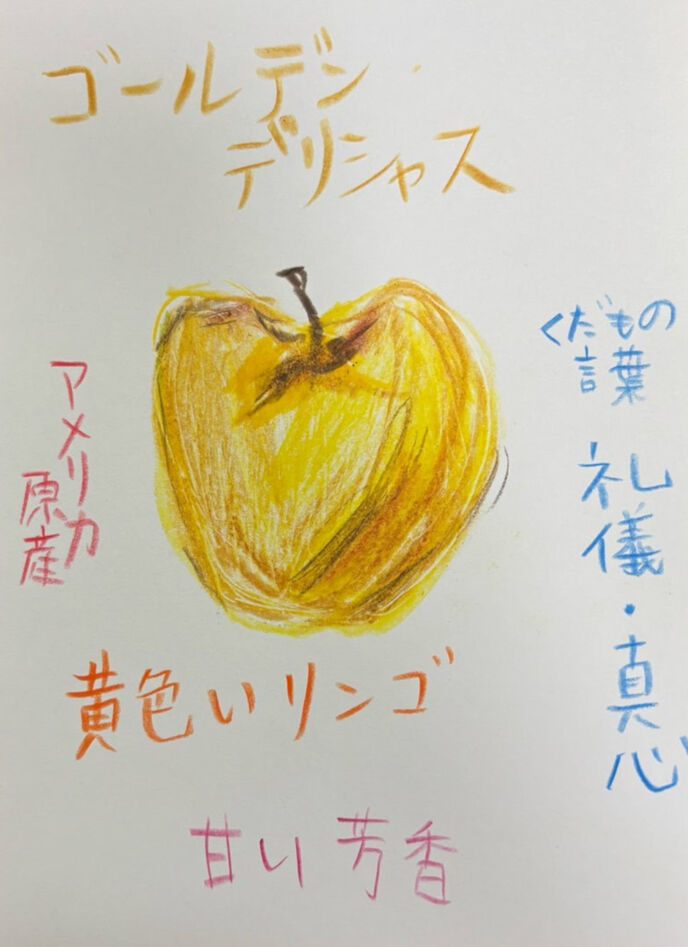 ゴールデン・
デリシャス
くだもの
言葉
礼儀・真心
アメリカ
原産
黄色いリンゴ
甘い芳香